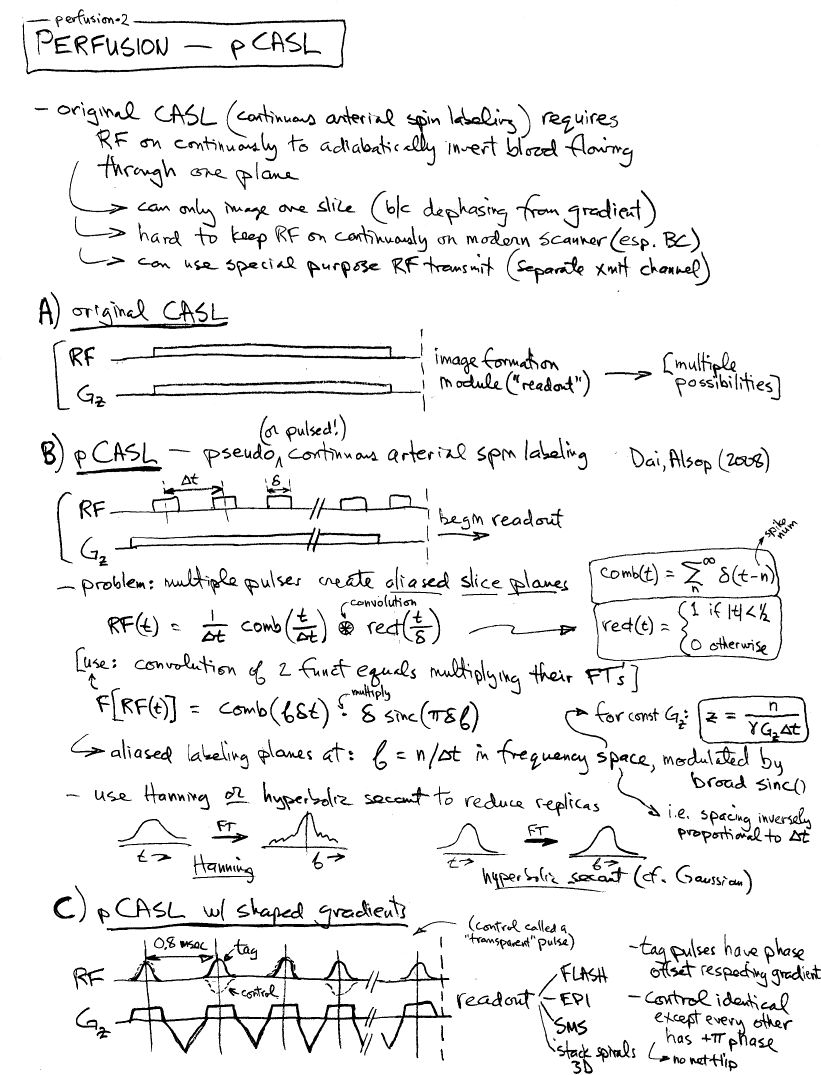 perfusion-2
PERFUSION — pCASL
- original CASL (continuous arterial spin labeling) requires
RF on continuously to adiabatically invert blood flowing
through one plane
→ can only image one slice (b/c dephasing from gradient)
→ hard to keep RF on continuously on modern scanner (esp. BC)
→ can use special purpose RF transmit (separate xmit channel)
A) original CASL
RF
Gz
image formation
module ("readout") → [multiple
possibilities]
(or pulsed!)
B) pCASL — pseudo^continuous arterial spin labeling Dai, Alsop (2008)
Δt δ
RF
Gz
begin readout
- problem: multiple pulses create aliased slice planes
spike num
comb(t) = Σ_n^∞ δ(t-n)
RF(t) = 1/Δt comb(t/Δt) ⊛ rect(t/δ)
convolution
rect(t) = { 1 if |t|<1/2
0 otherwise
[use: convolution of 2 funct equals multiplying their FT's]
F[RF(t)] = comb(fδt) · δ sinc(πδf)
multiply
for const Gz: z = n/γGzΔt
↳ aliased labeling planes at: f = n/Δt in frequency space, modulated by
broad sinc()
→ i.e. spacing inversely
proportional to Δt
- use Hanning or hyperbolic secant to reduce replicas
FT
t→ f→
Hanning
FT
t→ f→
hyperbolic secant (cf. Gaussian)
C) pCASL w/ shaped gradients
(control called a
"transparent" pulse)
0.8 msec
tag
control
RF
Gz
readout
FLASH
EPI
SMS
stack spirals
3D
- tag pulses have phase
offset respecting gradient
- control identical
except every other
has +π phase
↳ no net flip